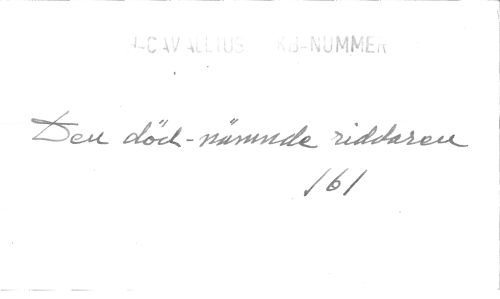 -CAVALLIUS KB-NUMMER
Den död-nämnde riddaren
161